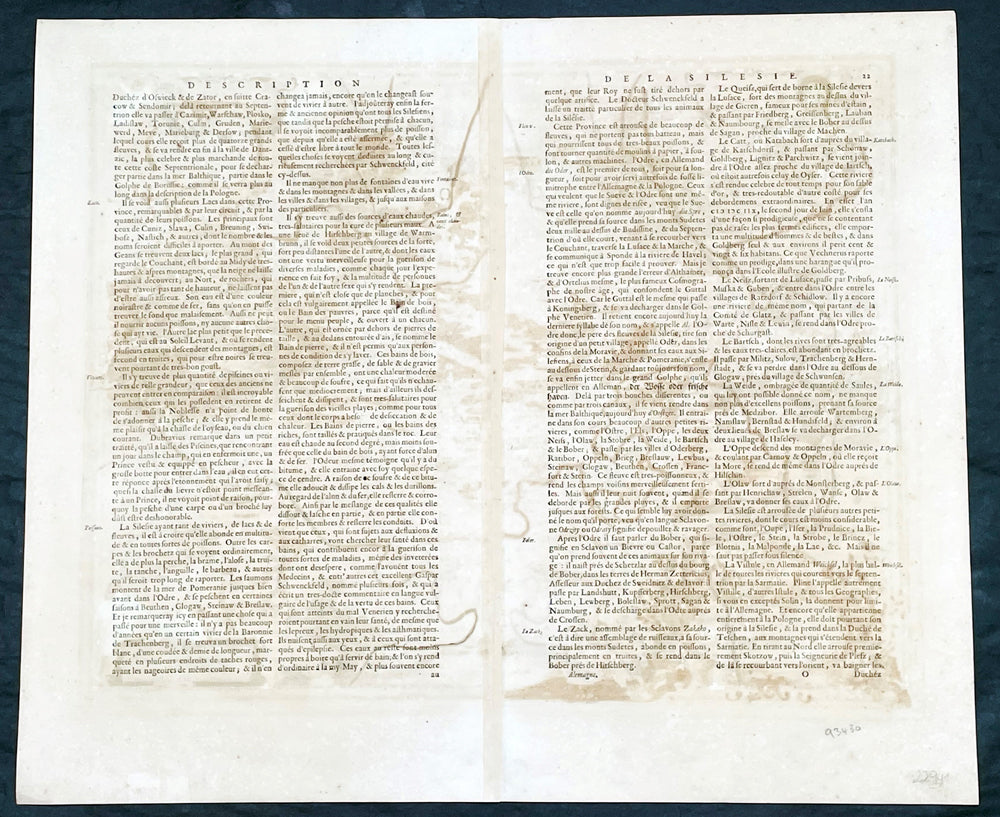 DESCRIPTION
Duchéz d'Oswieck & de Zator, en suitte Cra-
cow & Sendomir; delà retournant au Septen-
trion elle va passer à Cazimir, Warschaw, Plosko,
Ladislaw, Torunie, Culm, Gruden, Marie-
werd, Mevé, Marieburg & Dersow, pendant
lequel cours elle reçoit plus de quatorze grands
fleuves, & se va rendre en fin à la ville de Dant-
zic, la plus celebre & plus marchande de tou-
te cette coste Septentrionale, pour se déchar-
ger partie dans la mer Balthique, partie dans le
Golphe de Borussie; comme il se verra plus au
long dans la description de la Pologne.
Lacs.
Il se void aussi plusieurs Lacs dans cette Pro-
vince, remarquables & par leur circuit, & par la
quantité de leurs poissons. Les principaux sont
ceux de Cuniz, Slawa, Culm, Breuning, Swi-
bosc, Naslich, & autres, dont le nombre & les
noms seroient difficiles à aporter. Au mont des
Geans se treuvent deux lacs; le plus grand, qui
regarde le Couchant, est bordé au Midy de tres-
hautes & aspres montagnes, que la neige ne laisse
jamais à decouvert; au Nort, de rochers, qui
pour n'avoir pas tant de hauteur, ne laissent pas
d'estre aussi affreux. Son eau est d'une couleur
noirastre & comme de fer, sans qu'on en puisse
treuver le fond que malaisement. Aussi ne peut
il nourrir aucuns poissons, ny aucune autre cho-
se qui ait vie. l'Autre lac plus petit que le prece-
dent, qui est au Soleil Levant, & où se rendent
plusieurs eaux qui descendent des montagnes, est
second en truites, qui pour estre noires se treu-
vent pourtant de tres-bon goust.
Viviers.
Il y se treuve plus de quantité de piscines ou vi-
viers de telle grandeur, que ceux des anciens ne
peuvent entrer en comparaison: & il est incroyable
combien ceux qui les possedent en retirent de
profit: aussi la Noblesse n'a point de honte
de s'adonner à la pesche; & elle y prend le mé-
me plaisir qu'à la chasse de l'oyseau, ou du chien
courant. Dubravius remarque dans un petit
traitté, qu'il a laissé des Piscines, que rencontrant
un jour dans le champ, qui en enfermoit une, un
Prince vestu & equippé en pescheur, avec la
grosse botte pour entrer dans l'eau, il en eut cet-
te réponce après l'etonnement qu'il avoit faisy;
que si la chasse du lievre n'estoit point messean-
te à un Prince, il ne voyoit point de raison, pour-
quoy la pesche d'une carpe ou d'un brochet luy
dust estre deshonorable.
Poissons.
La Silesie ayant tant de viviers, de lacs & de
fleuves, il est à croire qu'elle abonde en multitu-
de & en toutes sortes de poissons. Outre les car-
pes & les brochetz qui se voyent ordinairement,
elle a de plus la perche, la brame, l'alose, la trui-
te, la tanche, l'anguille, le barbeau, & autres
qu'il seroit trop long de raporter. Les saumons
montent de la mer de Pomeranie jusques bien
avant dans l'Odre, & se peschent en certaines
saisons à Beuthen, Glogaw, Steinaw & Breslaw.
Et je remarqueray icy en passant une chose qui a
passé pour une merveille: il n'y a pas beaucoup
d'années qu'en un certain vivier de la Baronnie
de Trachenberg, il se treuva un brochet fort
blanc, d'une coudée & demie de longueur, mar-
queté en plusieurs endroits de taches rouges,
ayant les nageoires de méme couleur; & il n'en
changea jamais, encore qu'on le changeast sou-
vent de vivier à autre. J'adjouteray enfin la fer-
me & ancienne opinion qu'ont tous les Silesiens,
que tandis que la pesche estoit permise à chacun,
il se voyoit incomparablement plus de poisson,
que depuis qu'elle a esté asservée, & qu'elle a
cessé d'estre libre à tout le monde. Toutes les-
quelles choses se voyent deduites au long & cu-
rieusement recherchées par Schwenckfeld, cité
cy-dessus.
Fontaines.
Il ne manque non plus de fontaines d'eau vive
& dans les montagnes & dans les vallées, & dans
les villes & dans les villages, & jusqu'aux maisons
des particuliers.
Bains, &
eaux chau-
des.
Il y treuve aussi des sources d'eaux chaudes,
tres-salutaires pour la cure de plusieurs maux. A
une lieue de Hirschberg au village de Warm-
brunn, il se void deux petites sources de la sorte,
fort peu distantes l'une de l'autre, & dont les eaux
ont une vertu merveilleuse pour la guerison de
diverses maladies, comme chaque jour l'expe-
rience en fait foy, & la multitude de personnes
de l'un & de l'autre sexe qui s'y rendent. La pre-
miere, qui n'est close que de planches, & pour
cela est vulgairement appellée le Bain de bois,
ou le Bain des pauvres, parce qu'il est destiné
pour le menu peuple, & ouvert à un chacun.
L'autre, qui est ornée par dehors de pierres de
taille, & au dedans entourée d'ais, se nomme le
Bain de pierre, & il n'est permis qu'aux person-
nes de condition de s'y laver. Ces bains de bois,
composez de terre grasse, de sable & de gravier
meslez par ensemble, ont une chaleur moderée
& beaucoup de soufre, ce qui fait qu'ils n'echau-
fent que mediocrement; mais d'ailleurs ils des-
seichent & dissipent, & sont tres-salutaires pour
la guerison des vieilles playes; comme pour tous
ceux dont le corps a besoin de desiccation & de
chaleur. Les Bains de pierre, ou les bains de
riches, sont taillés & pratiqués dans le roc. Leur
eau est chaude au second degré, mais moins sou-
frée que celle du bain de bois, ayant force d'alun
& de fer. l'Odeur mesme témoigne qu'il y a du
bitume, & elle entraine avec soy quelque espe-
ce de cendre. A raison de ce soufre & de ce bitu-
me elle adoucit & dissipe les cals & les durillons.
Au regard de l'alun & du fer, elle resserre & corro-
bore. Ainsi par le meslange de ces qualités elle
dissout & lasche en partie, & en partie elle con-
forte les membres & resserre les conduits. D'où
vient que ceux, qui sont sujets aux defluxions &
aux catharres, vont chercher leur santé dans ces
bains, qui contribuent encor à la guerison de
toutes sortes de maladies, méme des inveterées
dont on est desesperé, comme l'avouent tous les
Medecins, & entr'autres cet excellent Gaspar
Schvvenckfeld, nommé plusieurs fois, & qui a
écrit un tres-docte commentaire en langue vul-
gaire de l'usage & de la vertu de ces bains. Ceux
qui sont atteints du mal Venerien y recherche-
roient pourtant en vain leur santé, de mesme que
les lepreux, les hydropiques & les asthmatiques.
Ils nuisent aussi aux yeux, & à ceux qui sont atta-
qués d'epilepsie. Ces eaux au reste sont moins
propres à boire qu'à servir de bain; & l'on s'y rend
d'ordinaire à la my May, & plus souvent encore
au
DE LA SILESIE.
22
ment, que leur Roy ne fust tiré dehors par
quelque artifice. Le Docteur Schwenckfeld a
laissé un traitté particulier de tous les animaux
de la Silesie.
Fleuves.
Cette Province est arrousée de beaucoup de
fleuves, qui ne portent pas tous batteau, mais
qui nourrissent tous de tres-beaux poissons, &
font tourner quantité de moulins à papier, à fou-
lon, & autres machines. l'Odre, en Alleman
l'Odre.
die Oder, est le premier de tous, soit pour sa lon-
gueur, soit pour avoir servi autrefois de fosse li-
mitrophe entre l'Allemagne & la Pologne. Ceux
qui veulent que le Sueve & l'Odre sont une mé-
me riviere, sont dignes de risée, veu que le Sue-
ve est celle qu'on nomme aujourd'huy die Spre,
& qu'elle prend sa source dans les monts Sudetes
deux mille au dessus de Budissine, & du Septen-
trion d'où elle court, venant à se recourber vers
le Couchant, traverse la Lusace & la Marche, &
se communique à Sponde à la riviere de Havel;
ce qui n'est que trop facile à prouver. Mais je
treuve encore plus grande l'erreur d'Althamer,
& d'Ortelius mesme, le plus fameux Cosmogra-
phe de nostre age, qui confondent le Guttal
avec l'Odre. Car le Guttal est le mesme qui passe
à Koningsberg, & se va décharger dans le Gol-
phe Venetien. Il retient encore aujourd'huy la
derniere syllabe de son nom, & s'appelle Al. l'O-
dre, le pere des fleuves de la Silesie, tire son
origine d'un petit village, appellé Oder, dans les
confins de la Moravie, & donnant ses eaux aux Si-
lesiens, à ceux de la Marche & Pomeranie, & cesse
au dessous de Stetin, & gardant toûjours son nom,
se va en fin jetter dans le grand Golphe, qu'ils
appellent en Alleman, der Woste oder frische
haven. Delà par trois bouches differentes, ou
comme par trois canaux, il se vient rendre dans
la mer Balthique, aujourd'huy d'Ostsee. Il entrai-
ne dans son cours beaucoup d'autres petites ri-
vieres, comme l'Olse, l'Elst, l'Oppe, les deux
Neiss, l'Olaw, la Stobre, la Weide, le Bartsch
& le Bober, & passe par les villes d'Oderberg,
Ratibor, Oppeln, Brieg, Breslaw, Leubus,
Steinaw, Glogaw, Beuthen, Crossen, Franc-
fort & Stetin. Ce fleuve est tres-poissonneux, &
rend les champs voisins merveilleusement ferti-
les. Mais aussi il leur nuit souvent, quand il se
deborde par les grandes pluyes, & il emporte
jusques aux forests. Ce qui semble luy avoir don-
né le nom qu'il porte, veu qu'en langue Sclavon-
ne Odrzy ou Odraz signifie depouiller & ravager.
Bober.
Après l'Odre il faut parler du Bober, qui si-
gnifie en Sclavon un Bievre ou Castor, parce
qu'on prend souvent de ces animaux sur son riva-
ge: il naist prés de Schetzlar au dessus du bourg
de Bober, dans les terres de Herman Zcettericz,
Assesseur aux Duchez de Swidnitz, & delà vient à
passe par Landshutt, Kupfferberg, Hirschberg,
Lehen, Lewberg, Boleslaw, Sprott, Sagan &
Naumburg, & se décharge dans l'Odre auprés
de Crossen.
Le Zack.
Le Zack, nommé par les Sclavons Zakcho,
c'est à dire une assemblage de ruisseaux, a sa sour-
ce dans les monts Sudetes, abonde en poissons,
principalement en truites, & se rend dans le
Bober prés de Hirschberg.
Alemagne.
Le Queiss, qui sert de borne à la Silesie devers
la Lusace, sort des montagnes au dessus du vil-
lage de Gieren, fameux pour ses mines d'estain,
& passant par Friedberg, Greiffenberg, Lauban
& Naumbourg, se mesle avec le Bober au dessus
de Sagan, proche du village de Machen.
Katzbach.
Le Catt, ou Katzbach sort d'auprés du villa-
ge de Katschdorff, & passant par Schonaw,
Goldberg, Lignitz & Parchwitz, se vient join-
dre à l'Odre assez proche du village de Iartsch,
où estoit autrefois celuy de Oyser. Cette riviere
s'est rendue celebre de tout temps pour son sable
d'or, & tres-redoutable d'autre costé pour ses
debordemens extraordinaires. En effet l'an
le second jour de Iuin, elle s'enfla
d'une façon si prodigieuse, que ne se contentant
pas de raser les plus fermes edifices, elle empor-
ta une multitude d'hommes & de bestes, & dans
Goldberg seul & aux environs il perit cent &
vingt & six habitans. Ce que Vechnerus raporte
comme un prodige, dans une harangue qu'il pro-
nonça dans l'Ecole illustre de Goldberg.
La Neiss.
Le Neiss, sortant de Lusace, passe par Pribuss,
Muska & Guben, & entre dans l'Odre entre les
villages de Ratzdorf & Schidlow. Il y a encore
une autre riviere de méme nom, qui partant de la
Comté de Glatz, & passant par les villes de
Warte, Nisse & Lewin, se rend dans l'Odre pro-
che de Schurgast.
Le Bartsch.
Le Bartsch, dont les rives sont tres-agreables
& les eaux tres-claires, est abondant en brochetz.
Il passe par Militz, Sulow, Trachenberg & Hern-
stadt, & se va perdre dans l'Odre au dessous de
Glogaw, prés du village de Schwusen.
La Weide.
La Weide, ombragée de quantité de Saules,
qui luy ont possible donné ce nom, ne manque
non plus d'excellens poissons, prenant sa source
prés de Medzibor. Elle arrouse Wartemberg,
Namslaw, Bernstad & Hundsfeld, & environ à
deux lieuës de Breslaw se va décharger dans l'O-
dre au village d'Hasdey.
L'Oppe.
L'Oppe descend des montagnes de Moravie,
& coulant par Carnow & Oppelm, où elle reçoit
la More, se rend de méme dans l'Odre auprés de
Hilschin.
L'Olaw.
L'Olaw sort d'auprés de Monsterberg, & pas-
sant par Henrichaw, Strelen, Wanse, Olaw &
Breslaw, va donner ses eaux à l'Odre.
La Silesie est arrousée de plusieurs autres peti-
tes rivieres, dont le cours est moins considerable,
comme sont, l'Oupe, l'Iser, la Prudnice, la Bie-
le, l'Ostre, la Stein, la Strobe, le Brinez, le
Blotnis, la Malponde, la Lae, &c. Mais il ne
faut pas passer sous silence
Weichsel.
La Vistule, en Allemand Weichsel, la plus bel-
le de toutes les rivieres qui courent vers le septen-
trion par la Sarmatie. Pline l'appelle autrement
Vistule, d'autres Istule, & tous les Geographes,
si vous en exceptés Solin, la donnent pour limi-
te à l'Allemagne. Et encore qu'elle appartienne
entierement à la Pologne, elle doit pourtant son
origine à la Silesie, & la prend dans la Duché de
Teschen, aux montagnes qui s'étendent vers la
Sarmatie. En tirant au Nord elle arrouse premie-
rement Skotzow, puis la Seigneurie de Plesz; &
de là se recourbant vers l'orient, va baigner les
O
Duchéz
93430